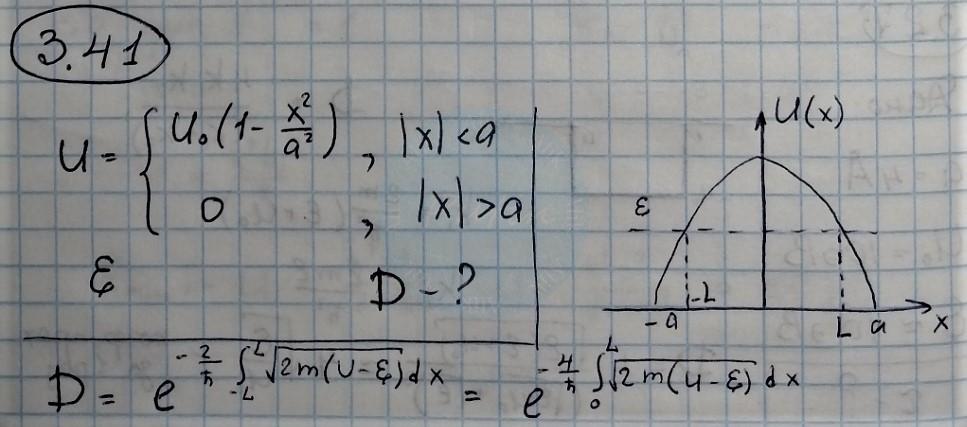 3.41
U = { U₀(1 - x²/a²), |x| < a
0, |x| > a
ε D - ?
U(x)
ε
-a -L L a x
D = e^(-2/ħ ∫_{-L}^{L} √(2m(U-ε)) dx) = e^(-4/ħ ∫_0^L √(2m(U-ε)) dx)